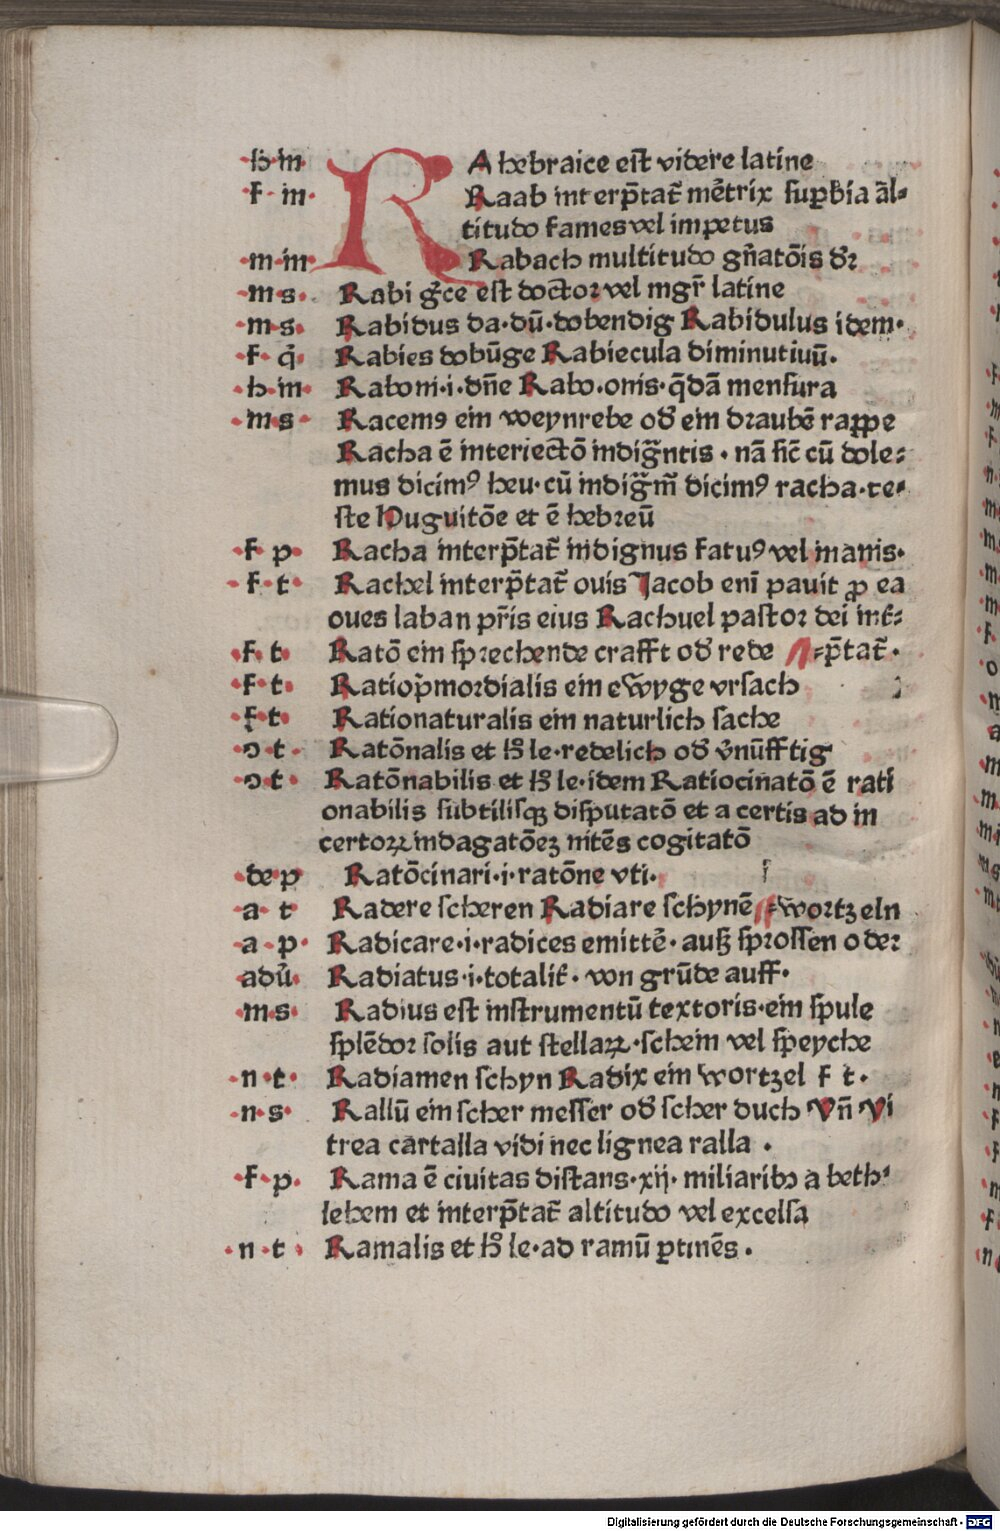 ·h·m· RA hebraice est videre latine
·f· m· Raab interp̄tat̄ mēt̄rix sup̱bia āl⸗
titudo fames vel impetus
·m·m· Rabach multitudo gn̄atōis dr̄
·m·s· Rabi gr̄ce est doctor vel mgr̄ latine
·m·s· Rabidus da·dū·dobendig Rabidulus idem·
·f· q̄· Rabies dobūge Rabiecula diminutiuū·
·h·m· Raboni·i·dn̄e Rabo·onis·q̄dā mensura
·m·s· Racemꝰ ein weynrebe od̄ ein draubē rappe
Racha ē interiectō indign̄ntis · nā sic̄ cū dole⸗
mus dicimꝰ heu·cū indign̄m̄ dicimꝰ racha·te⸗
ste Huguitōe et ē hebreū
·f· p· Racha interp̄tat̄ indignus fatuꝰ vel inanis·
·f·t· Rachel interp̄tat̄ ouis Jacob enī pauit ꝓ ea
oues laban pr̄is eius Rachuel pastor dei int̄⸗
·f· t· Ratō ein sprechende crafft od̄ rede ⸗p̄tat̄·
·f·t· Ratiop̄mordialis ein ewyge vrsach
·f·t· Rationaturalis ein naturlich sache
·ɔ·t· Ratōnalis et h̄ le·redelich od̄ v̄nūfftig
·ɔ·t· Ratōnabilis et h̄ le·idem Ratiocinatō ē rati
onabilis subtilisqꝫ disputatō et a certis ad in
certoꝝ indagatōeꝫ nitēs cogitatō
·de·p Ratōcinari·i·ratōne vti·
·a· t Radere scheren Radiare schynē ⸗wortzeln
·a· p· Radicare·i·radices emittē· auß sprossen oder
adū· Radiatus·i·totalit̄· von grūde auff·
·m·s· Radius est instrumentū textoris·ein spule
splēdor solis aut stellaꝝ·schein vel speyche
·n·t· Radiamen schyn Radix ein wortzel f t·
·n·s· Rallū ein scher messer od̄ scher duch Vn̄ Vi
trea cartalla vidi nec lignea ralla ·
·f·p· Rama ē ciuitas distans·xij· miliaribꝫ a beth⸗
lehem et interp̄tat̄ altitudo vel excelsa
·n·t· Ramalis et h̄ le·ad ramū ꝑtinēs·
Digitalisierung gefördert durch die Deutsche Forschungsgemeinschaft - DFG